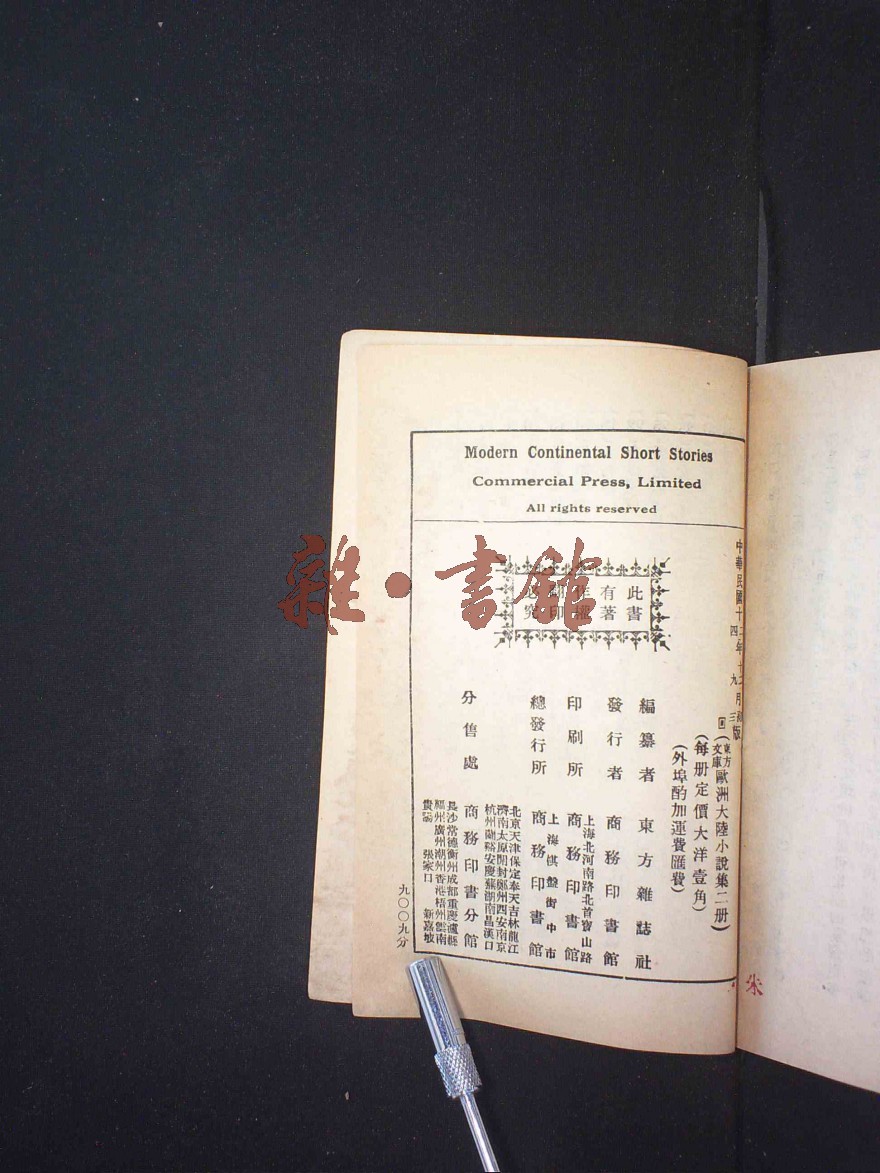 Modern Continental Short Stories
Commercial Press, Limited
All rights reserved
中華民國十二年十二月初版
四 九 三
回(東方文庫歐洲大陸小說集二册)
(每册定價大洋壹角)
(外埠酌加運費匯費)
此書
有著
作權
翻印
必究
編纂者 東方雜誌社
發行者 商務印書館
印刷所 上海北河南路北首寶山路 商務印書館
總發行所 上海棋盤街中市 商務印書館
分售處 商務印書分館
北京天津保定奉天吉林龍江
濟南太原開封鄭州西安南京
杭州蘭谿安慶蕪湖南昌漢口
長沙常德衡州成都重慶瀘縣
福州廣州潮州香港梧州雲南
貴陽 張家口 新嘉坡
九〇〇九分
雜·書館
朱